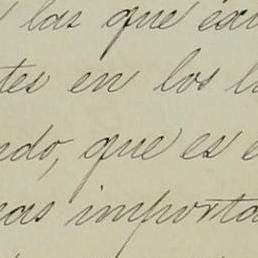 las que ex
tes en los l
ndo, que es e
as importa